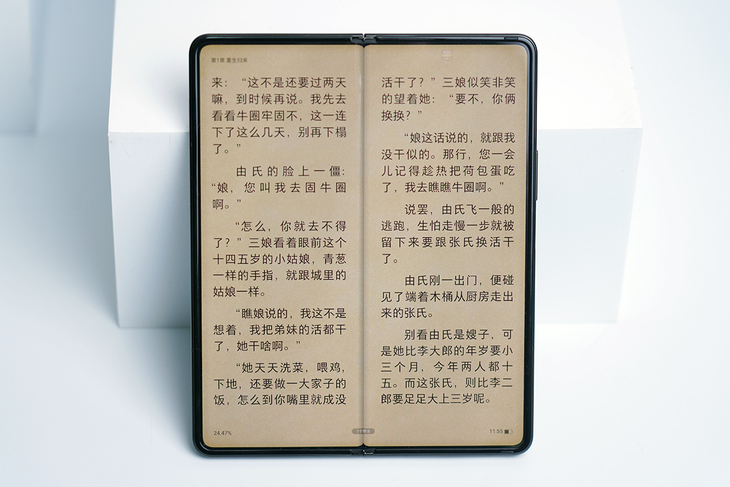 第1章 重生归来
来：“这不是还要过两天
嘛，到时候再说。我先去
看看牛圈牢固不，这一连
下了这么几天，别再下榻
了。”
由氏的脸上一僵：
“娘，您叫我去固牛圈
啊。”
“怎么，你就去不得
了？”三娘看着眼前这个
十四五岁的小姑娘，青葱
一样的手指，就跟城里的
姑娘一样。
“瞧娘说的，我这不是
想着，我把弟妹的活都干
了，她干啥啊。”
“她天天洗菜，喂鸡，
下地，还要做一大家子的
饭，怎么到你嘴里就成没
24.47%
活干了？”三娘似笑非笑
的望着她：“要不，你俩
换换？”
“娘这话说的，就跟我
没干似的。那行，您一会
儿记得趁热把荷包蛋吃
了，我去瞧瞧牛圈啊。”
说罢，由氏飞一般的
逃跑，生怕走慢一步就被
留下来要跟张氏换活干
了。
由氏刚一出门，便碰
见了端着木桶从厨房走出
来的张氏。
别看由氏是嫂子，可
是她比李大郎的年岁要小
三个月，今年两人都十
五。而这张氏，则比李二
郎要足足大上三岁呢。
11:55